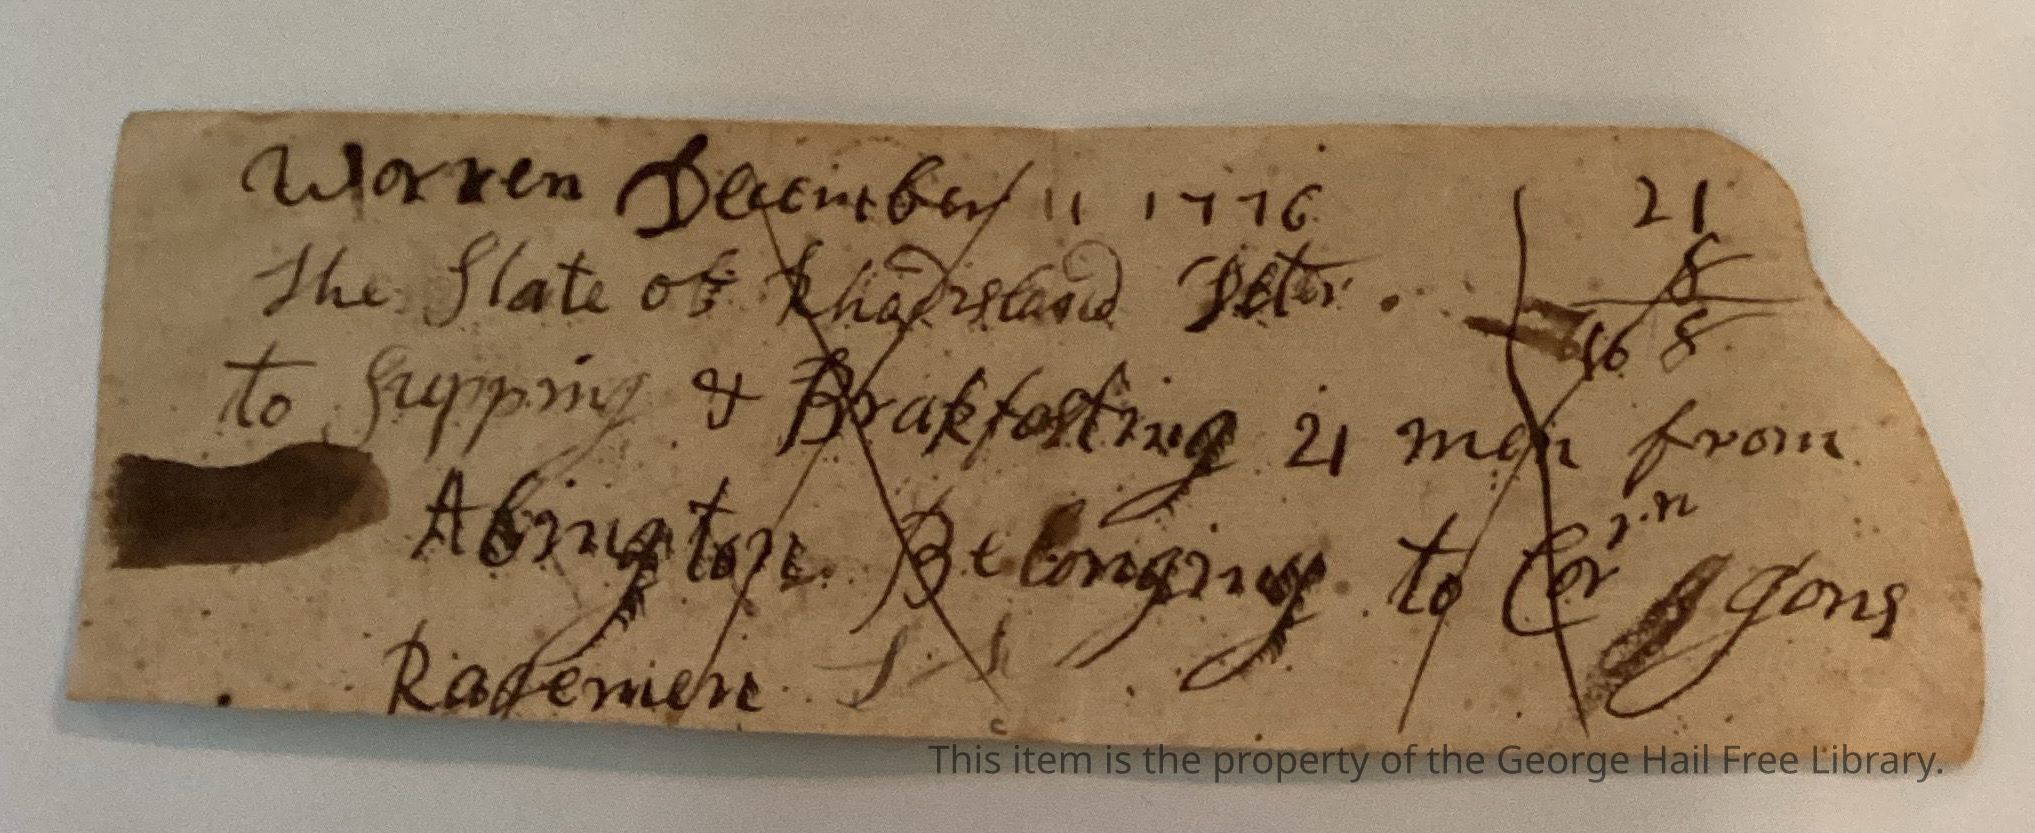 Warren December 11 1776 21
The State of Rhodisland Detr. 8
16 8
to Supping & Brakfasting 21 men from
Abington Belonging to Corrn Gons
Ragemen
This item is the property of the George Hail Free Library.